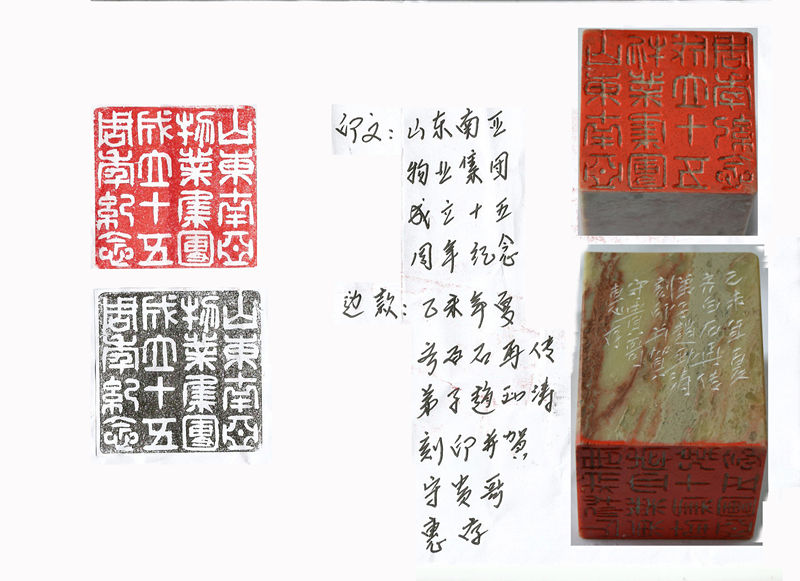 山東南亞
物業集團
成立十五
周年紀念
山東南亞
物業集團
成立十五
周年紀念
印文：山东南亚
物业集团
成立十五
周年纪念
边款：乙未年夏
齐白石再传
弟子趙涛
刻印并贺
守贵哥
惠存
山東南亞
物業集團
成立十五
周年紀念
乙未年夏
齐白石再传
弟子趙涛
刻印并贺
守贵哥
惠存